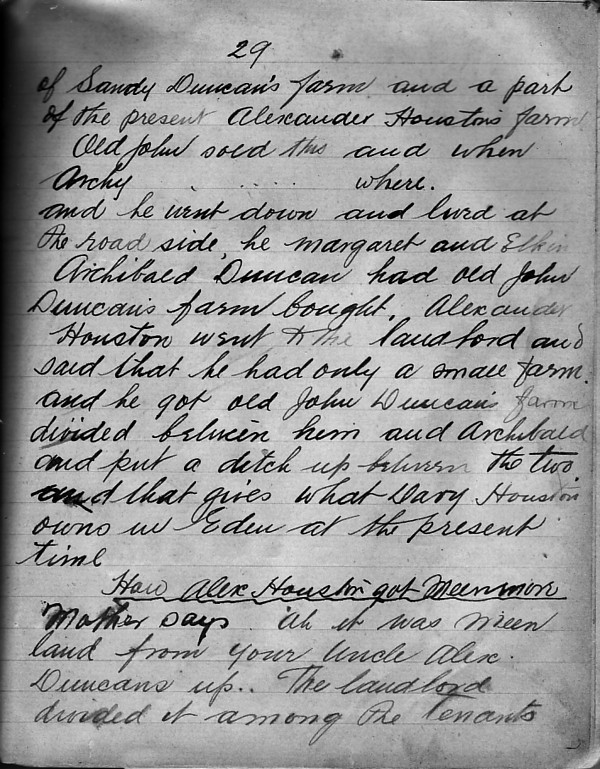 29
of Sandy Duncan's farm and a part
of the present Alexander Houston's farm
Old John soed this and when
Archy . . . . . . where.
and he went down and lived at
the road side, he margaret and
Archibald Duncan had old John
Duncan's farm bought. Alexander
Houston went to the landlord and
said that he had only a small farm.
and he got old John Duncan's farm
divided between him and Archibald
and put a ditch up between the two
and that gives what Davy Houston
owns in Eden at the present
time
How Alex Houston got Meenmore
Mother says it was Meen
land from your Uncle Alex.
Duncans up.. The landlord
divided it among the tenants